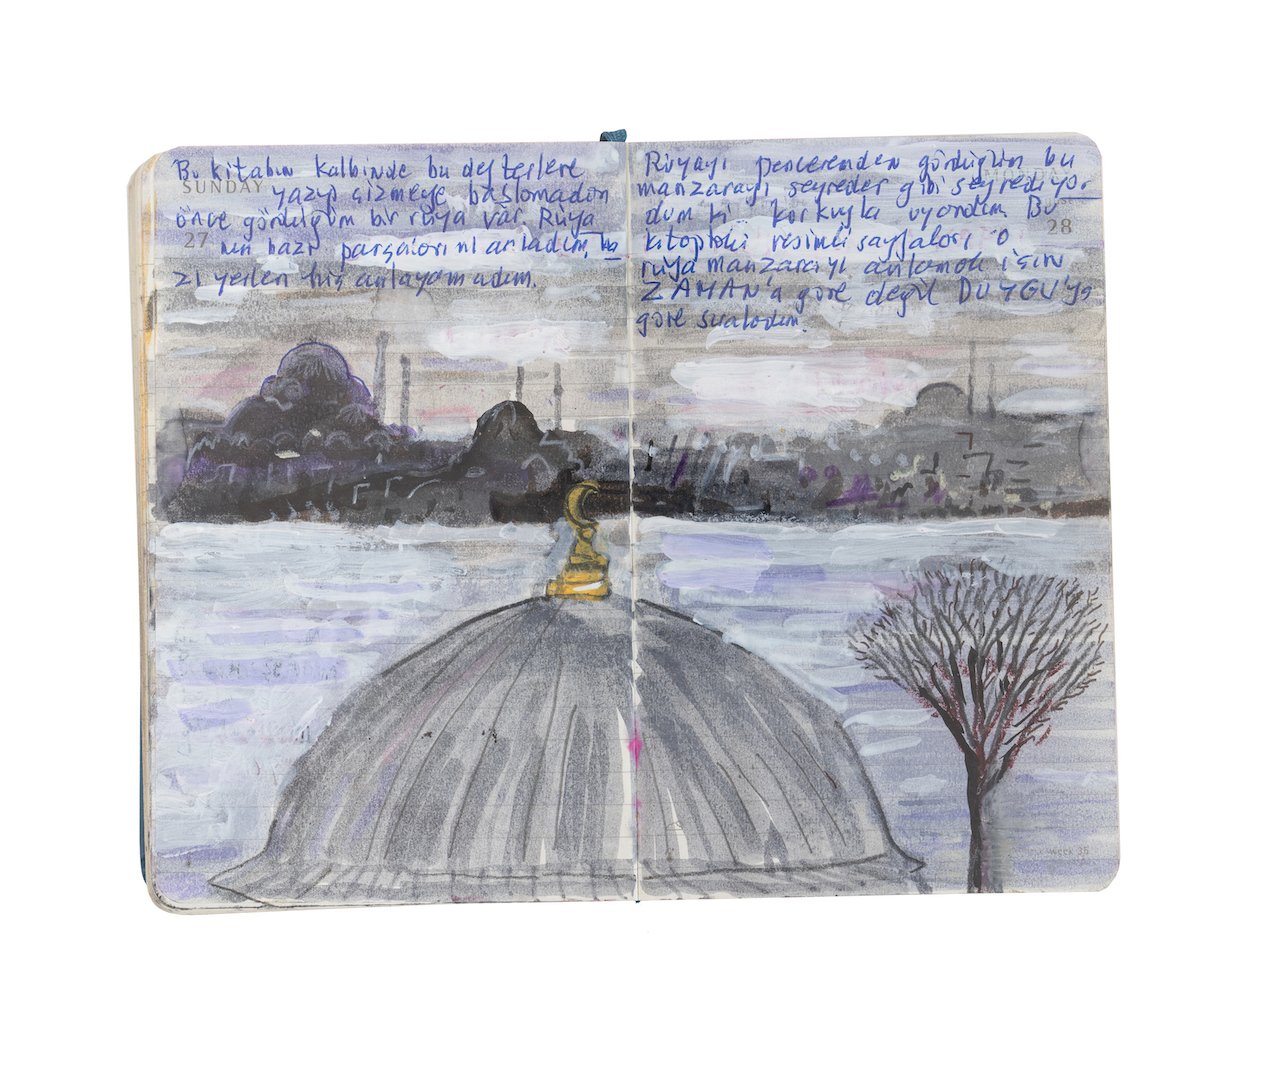 Bu kitabın kalbinde bu defterlere
SUNDAY
yazıp çizmeye başlamadan
önce gördüğüm bir rüya var. Rüya
27
nın bazı parçalarını anladım, ba
zı yerleri hiç anlayamadım.
Rüyayı penceremden gördüğüm bu
manzarayı seyreder gibi seyrediyor
dum ki korkuyla uyandım. Bu
28
kitaptaki resimli sayfaları o
rüya manzarayı anlamak için
ZAMAN'a göre değil DUYGU'ya
göre sıraladım.
Week 35